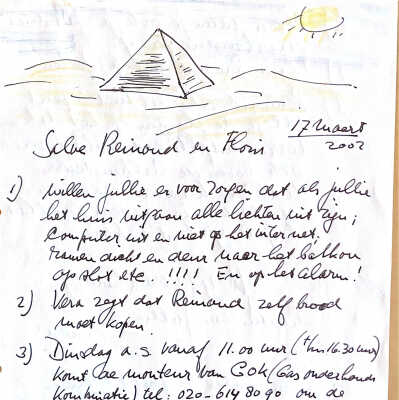 17 maart
2002
Salve Reinoud en Floris
1) willen jullie er voor zorgen dat als jullie
het huis uitgaan alle lichten uit zijn;
Computer uit en niet op het internet.
ramen dicht en deur naar het balkon
op slot etc. !!!! En op het alarm!
2) Vera zegt dat Reinoud zelf brood
moet kopen.
3) Dinsdag a.s. vanaf 11.00 uur (t/m 16.30 uur)
komt de monteur van GOK (Gas onderhouds
Kombinatie) tel: 020-6148090 om de